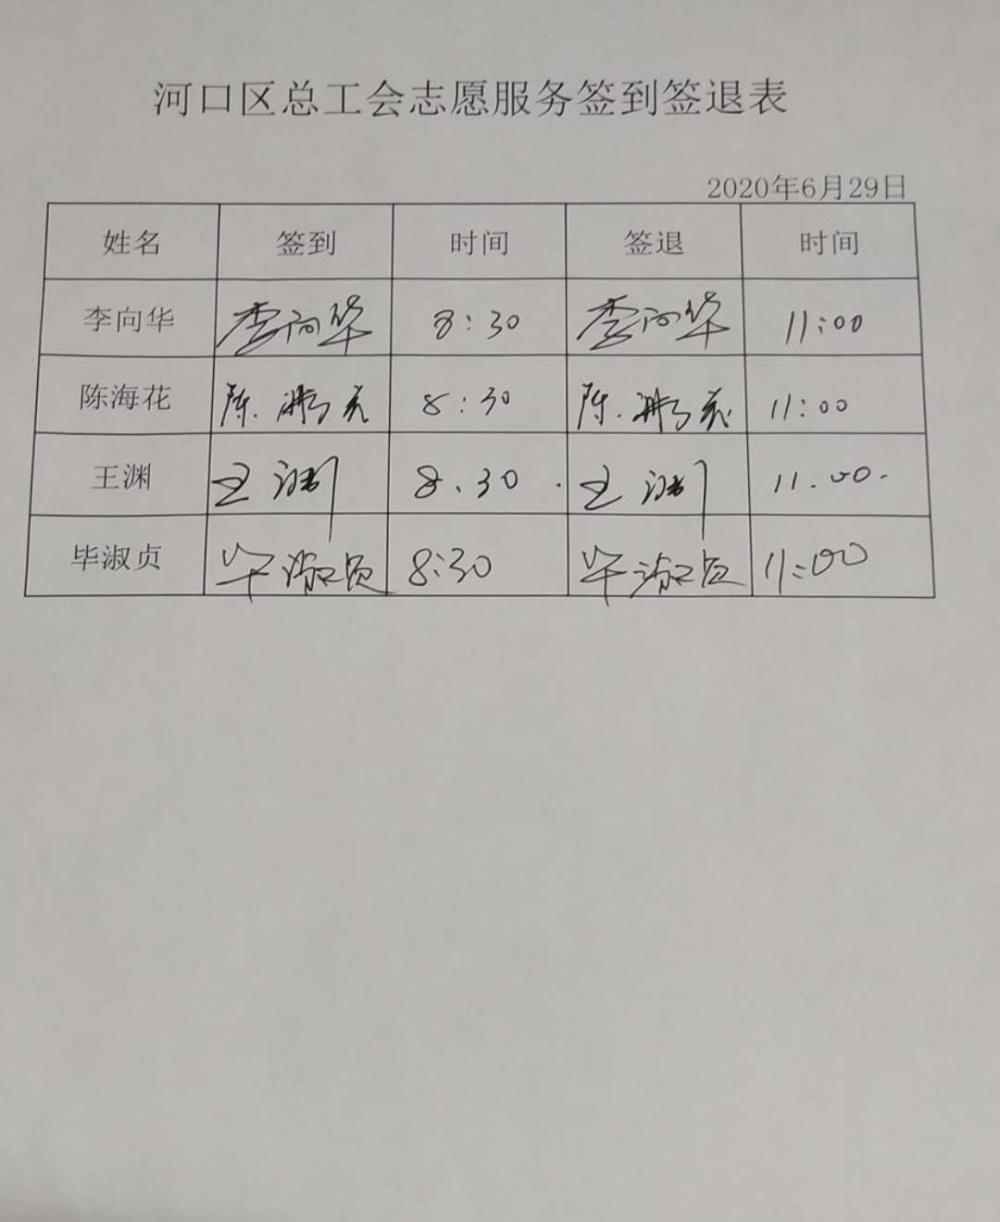 河口区总工会志愿服务签到签退表
2020年6月29日
姓名 签到 时间 签退 时间
李向华 李向华 8:30 李向华 11:00
陈海花 陈海花 8:30 陈海花 11:00
王渊 王渊 8.30 王渊 11.00.
毕淑贞 毕淑贞 8:30 毕淑贞 11:00